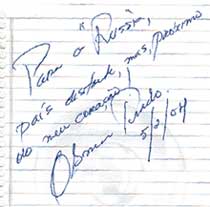 Para o "Rússia",
país distante, mas, próximo
do meu coração,
Osmar Prado.
5/2/04